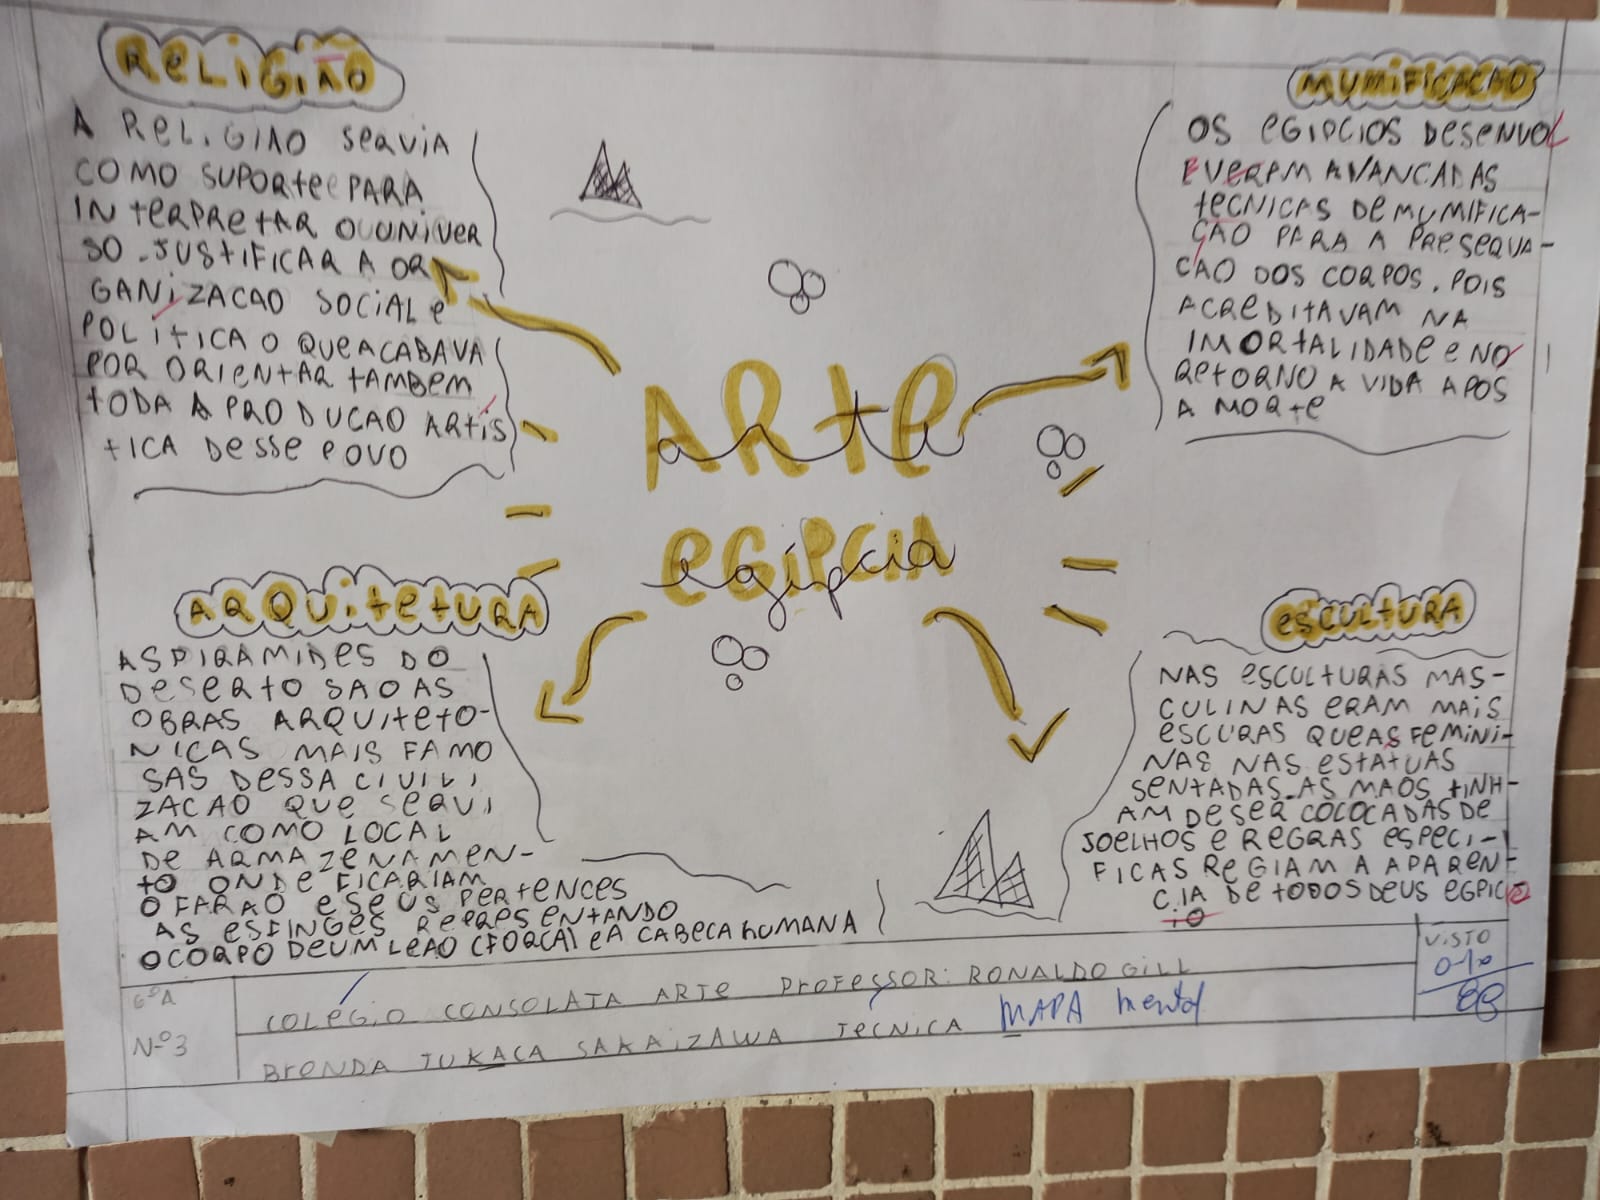 RELIGIÃO
A RELIGIAO SEQVIA
COMO SUPORTE PARA
INTERPRETAR O UNIVER
SO. JUSTIFICAR A OR
GANIZACAO SOCIAL E
POLITICA O QUE ACABAVA
POR ORIENTAR TAMBEM
TODA A PRODUCAO ARTÍS
TICA DESSE POVO
MUMIFICACAO
OS EGIPCIOS DESENVOL
VERAM AVANCADAS
TECNICAS DE MUMIFICA-
ÇAO PARA A PRESEQVA-
CAO DOS CORPOS. POIS
ACREDITAVAM NA
IMORTALIDADE E NO
RETORNO A VIDA APOS
A MORTE
ARTE
arte
EGIPCIA
egípcia
ARQUITETURA
AS PIRAMIDES DO
DESERTO SAO AS
OBRAS ARQUITETO-
NICAS MAIS FAMO
SAS DESSA CIVILI
ZACAO QUE SEQVI
AM COMO LOCAL
DE ARMAZENAMEN-
TO ONDE FICARIAM
O FARAO E SEUS PERTENCES
AS ESFINGES REPRESENTANDO
O CORPO DE UM LEAO (FORCA) E A CABECA HUMANA
ESCULTURA
NAS ESCULTURAS MAS-
CULINAS ERAM MAIS
ESCURAS QUE AS FEMINI-
NAS NAS ESTATUAS
SENTADAS. AS MAOS TINH-
AM DE SER COLOCADAS DE
JOELHOS E REGRAS ESPECI-
FICAS REGIAM A APAREN-
CIA DE TODOS DEUS EGPIC
IO
6ºA
COLEGIO CONSOLATA ARTE PROFESSOR: RONALDO GILL
VISTO
Nº3
BRENDA TUKACA SAKAIZAWA TECNICA MAPA mental